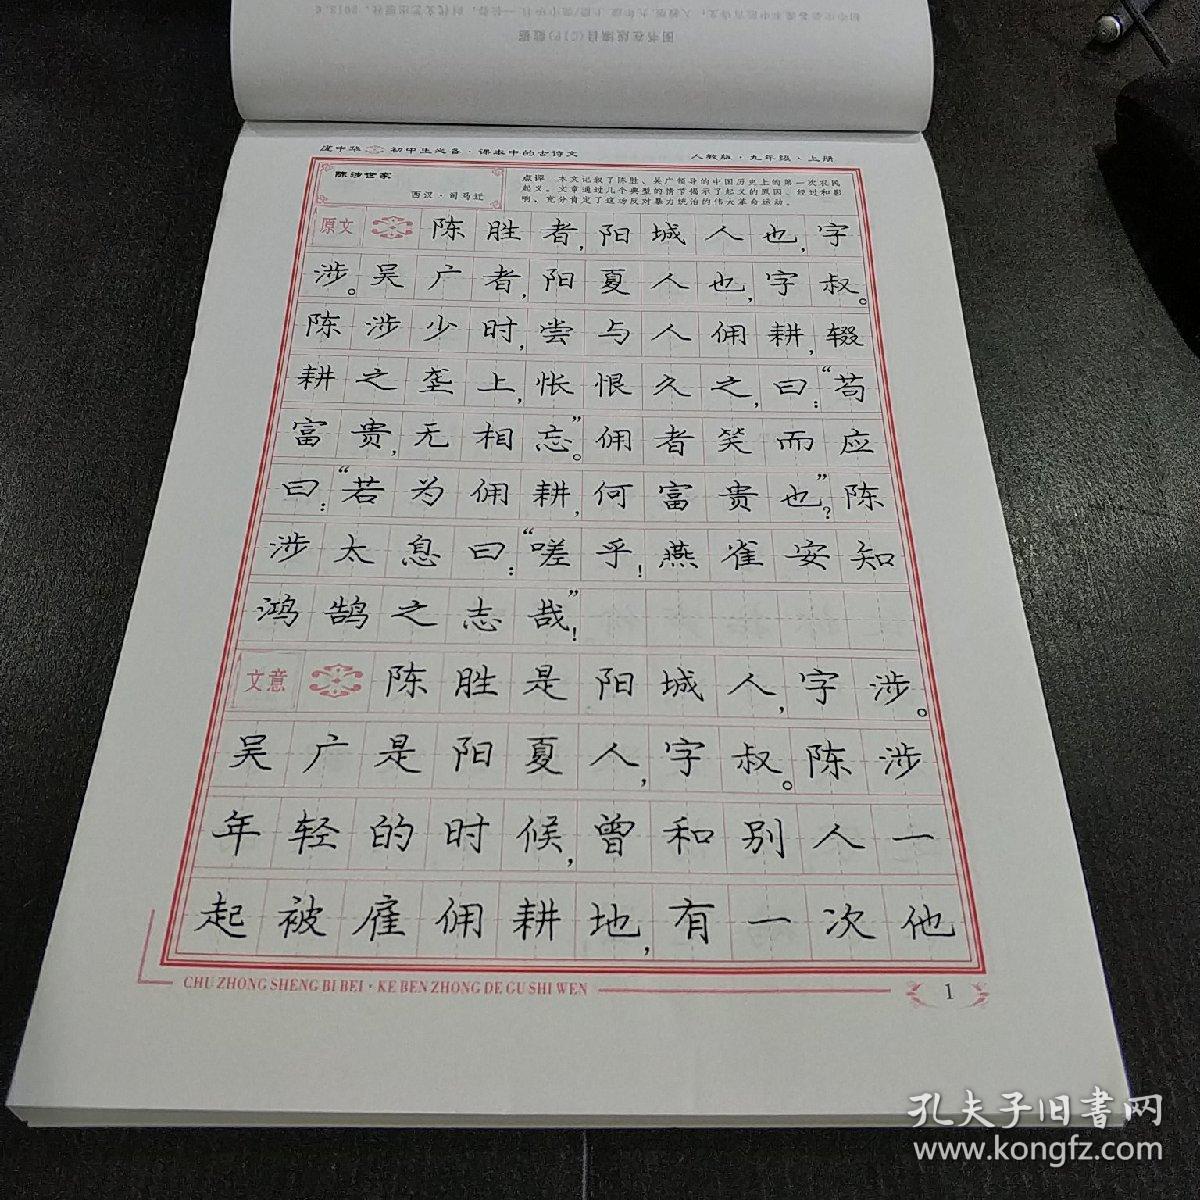 图书在版编目(CIP)数据
庞中华 初中生必备·课本中的古诗文 人教版·九年级·上册
陈涉世家
西汉·司马迁
点评 本文记叙了陈胜、吴广领导的中国历史上的第一次农民
起义。文章通过几个典型的情节揭示了起义的原因、经过和影
响，充分肯定了这场反对暴力统治的伟大革命运动。
原文 陈胜者,阳城人也,字
涉。吴广者,阳夏人也,字叔。
陈涉少时,尝与人佣耕,辍
耕之垄上,怅恨久之,曰:“苟
富贵,无相忘。”佣者笑而应
曰:“若为佣耕,何富贵也?”陈
涉太息曰:“嗟乎!燕雀安知
鸿鹄之志哉!”
文意 陈胜是阳城人,字涉。
吴广是阳夏人,字叔。陈涉
年轻的时候,曾和别人一
起被雇佣耕地,有一次他
CHU ZHONG SHENG BI BEI · KE BEN ZHONG DE GU SHI WEN
1
孔夫子旧書网
www.kongfz.com